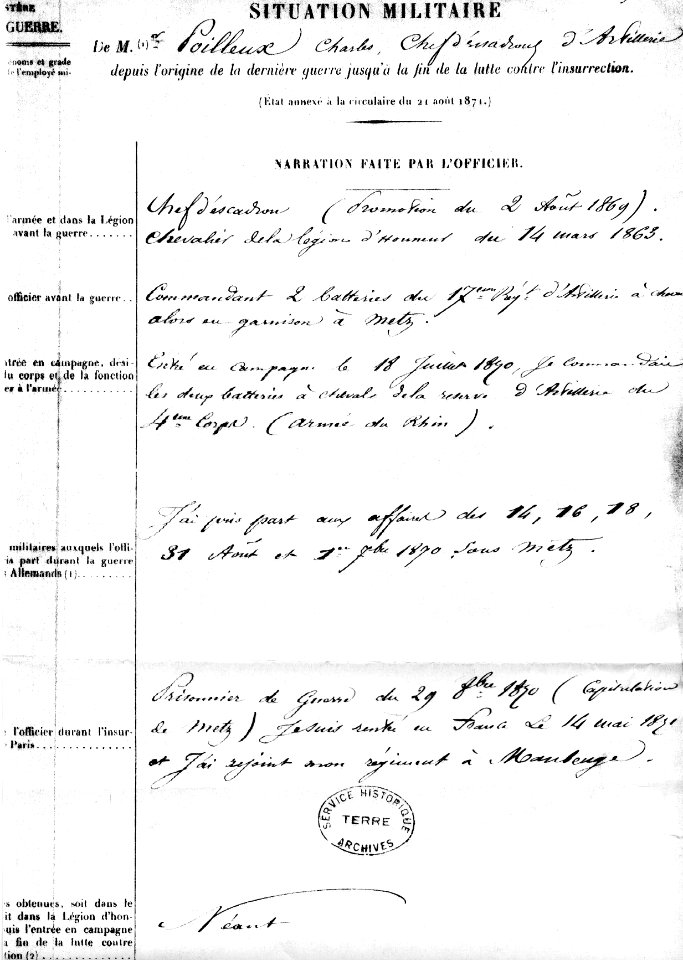 STÈRE
GUERRE.
énoms et grade
e l'employé mi-
SITUATION MILITAIRE
De M. (1) Poilleux Charles, Chef d'escadrons d'Artillerie
depuis l'origine de la dernière guerre jusqu'à la fin de la lutte contre l'insurrection.
(État annexé à la circulaire du 21 août 1871.)
NARRATION FAITE PAR L'OFFICIER.
l'armée et dans la Légion
avant la guerre.......
Chef d'escadron (Promotion du 2 Août 1869).
Chevalier de la légion d'Honneur du 14 mars 1863.
officier avant la guerre..
Commandant 2 batteries du 17eme Regt d'Artillerie à cheval
alors en garnison à Metz.
ntrée en campagne, dési-
du corps et de la fonction
er à l'armée
Entré en campagne le 18 Juillet 1870, Je commandais
les deux batteries à cheval de la reserve d'Artillerie du
4eme Corps. (Armée du Rhin).
militaires auxquels l'offi-
is part durant la guerre
Allemands (1)
J'ai pris part aux affaires des 14, 16, 18,
31 Août et 1er 7bre 1870 sous Metz.
e l'officier durant l'insur-
Paris
Prisonnier de Guerre du 29 8bre 1870 (Capitulation
de Metz) Je suis rentré en France le 14 mai 1871
et J'ai rejoint mon régiment à Maubeuge.
SERVICE HISTORIQUE
TERRE
ARCHIVES
s obtenues, soit dans le
it dans la Légion d'hon-
uis l'entrée en campagne
a fin de la lutte contre
ion (2)
Néant